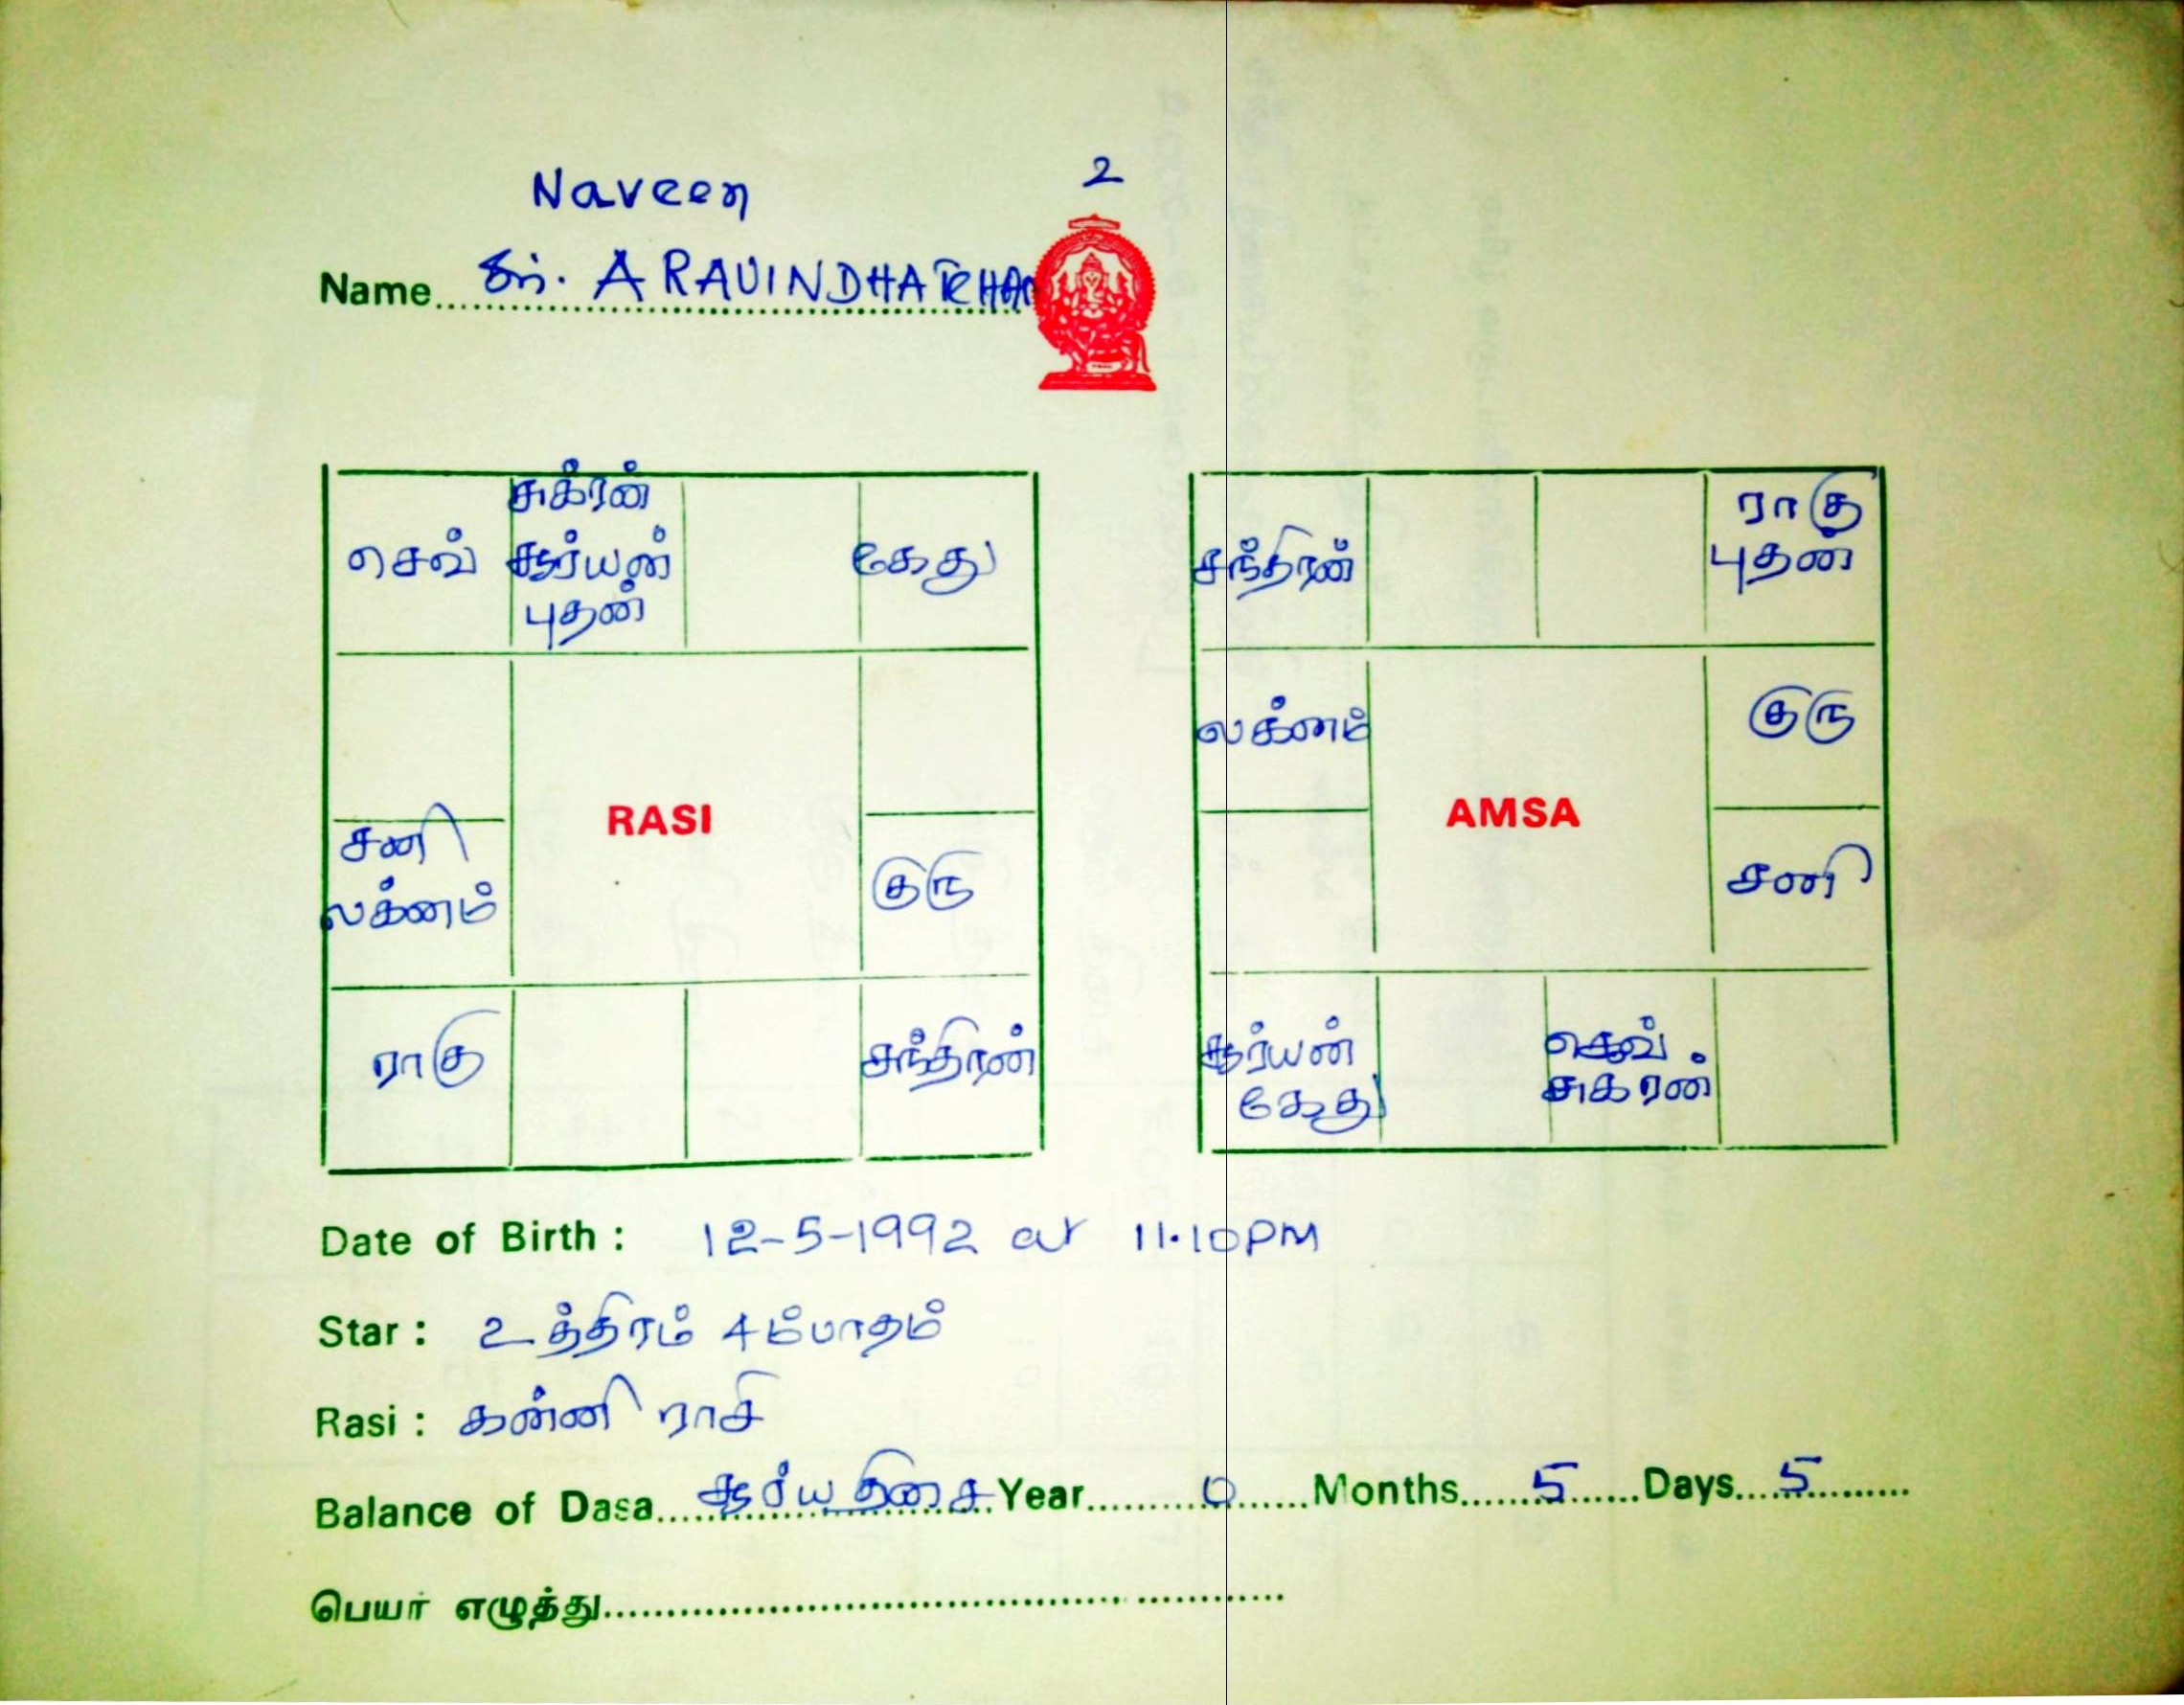 Naveen
2
Name
செவ்
சுக்ரன்
சூர்யன்
புதன்
கேது
சனி
லக்னம்
RASI
குரு
ராகு
சந்திரன்
சந்திரன்
ராகு
புதன்
லக்னம்
குரு
AMSA
சனி
சூர்யன்
கேது
செவ்.
சுக்ரன்
Date of Birth : 12-5-1992 at 11.10PM
Star : உத்திரம் 4ம்பாதம்
Rasi : கன்னி ராசி
Balance of Dasa....சூர்ய திசை..Year..........0......Months.......5......Days....5..........
பெயர் எழுத்து..........................................................